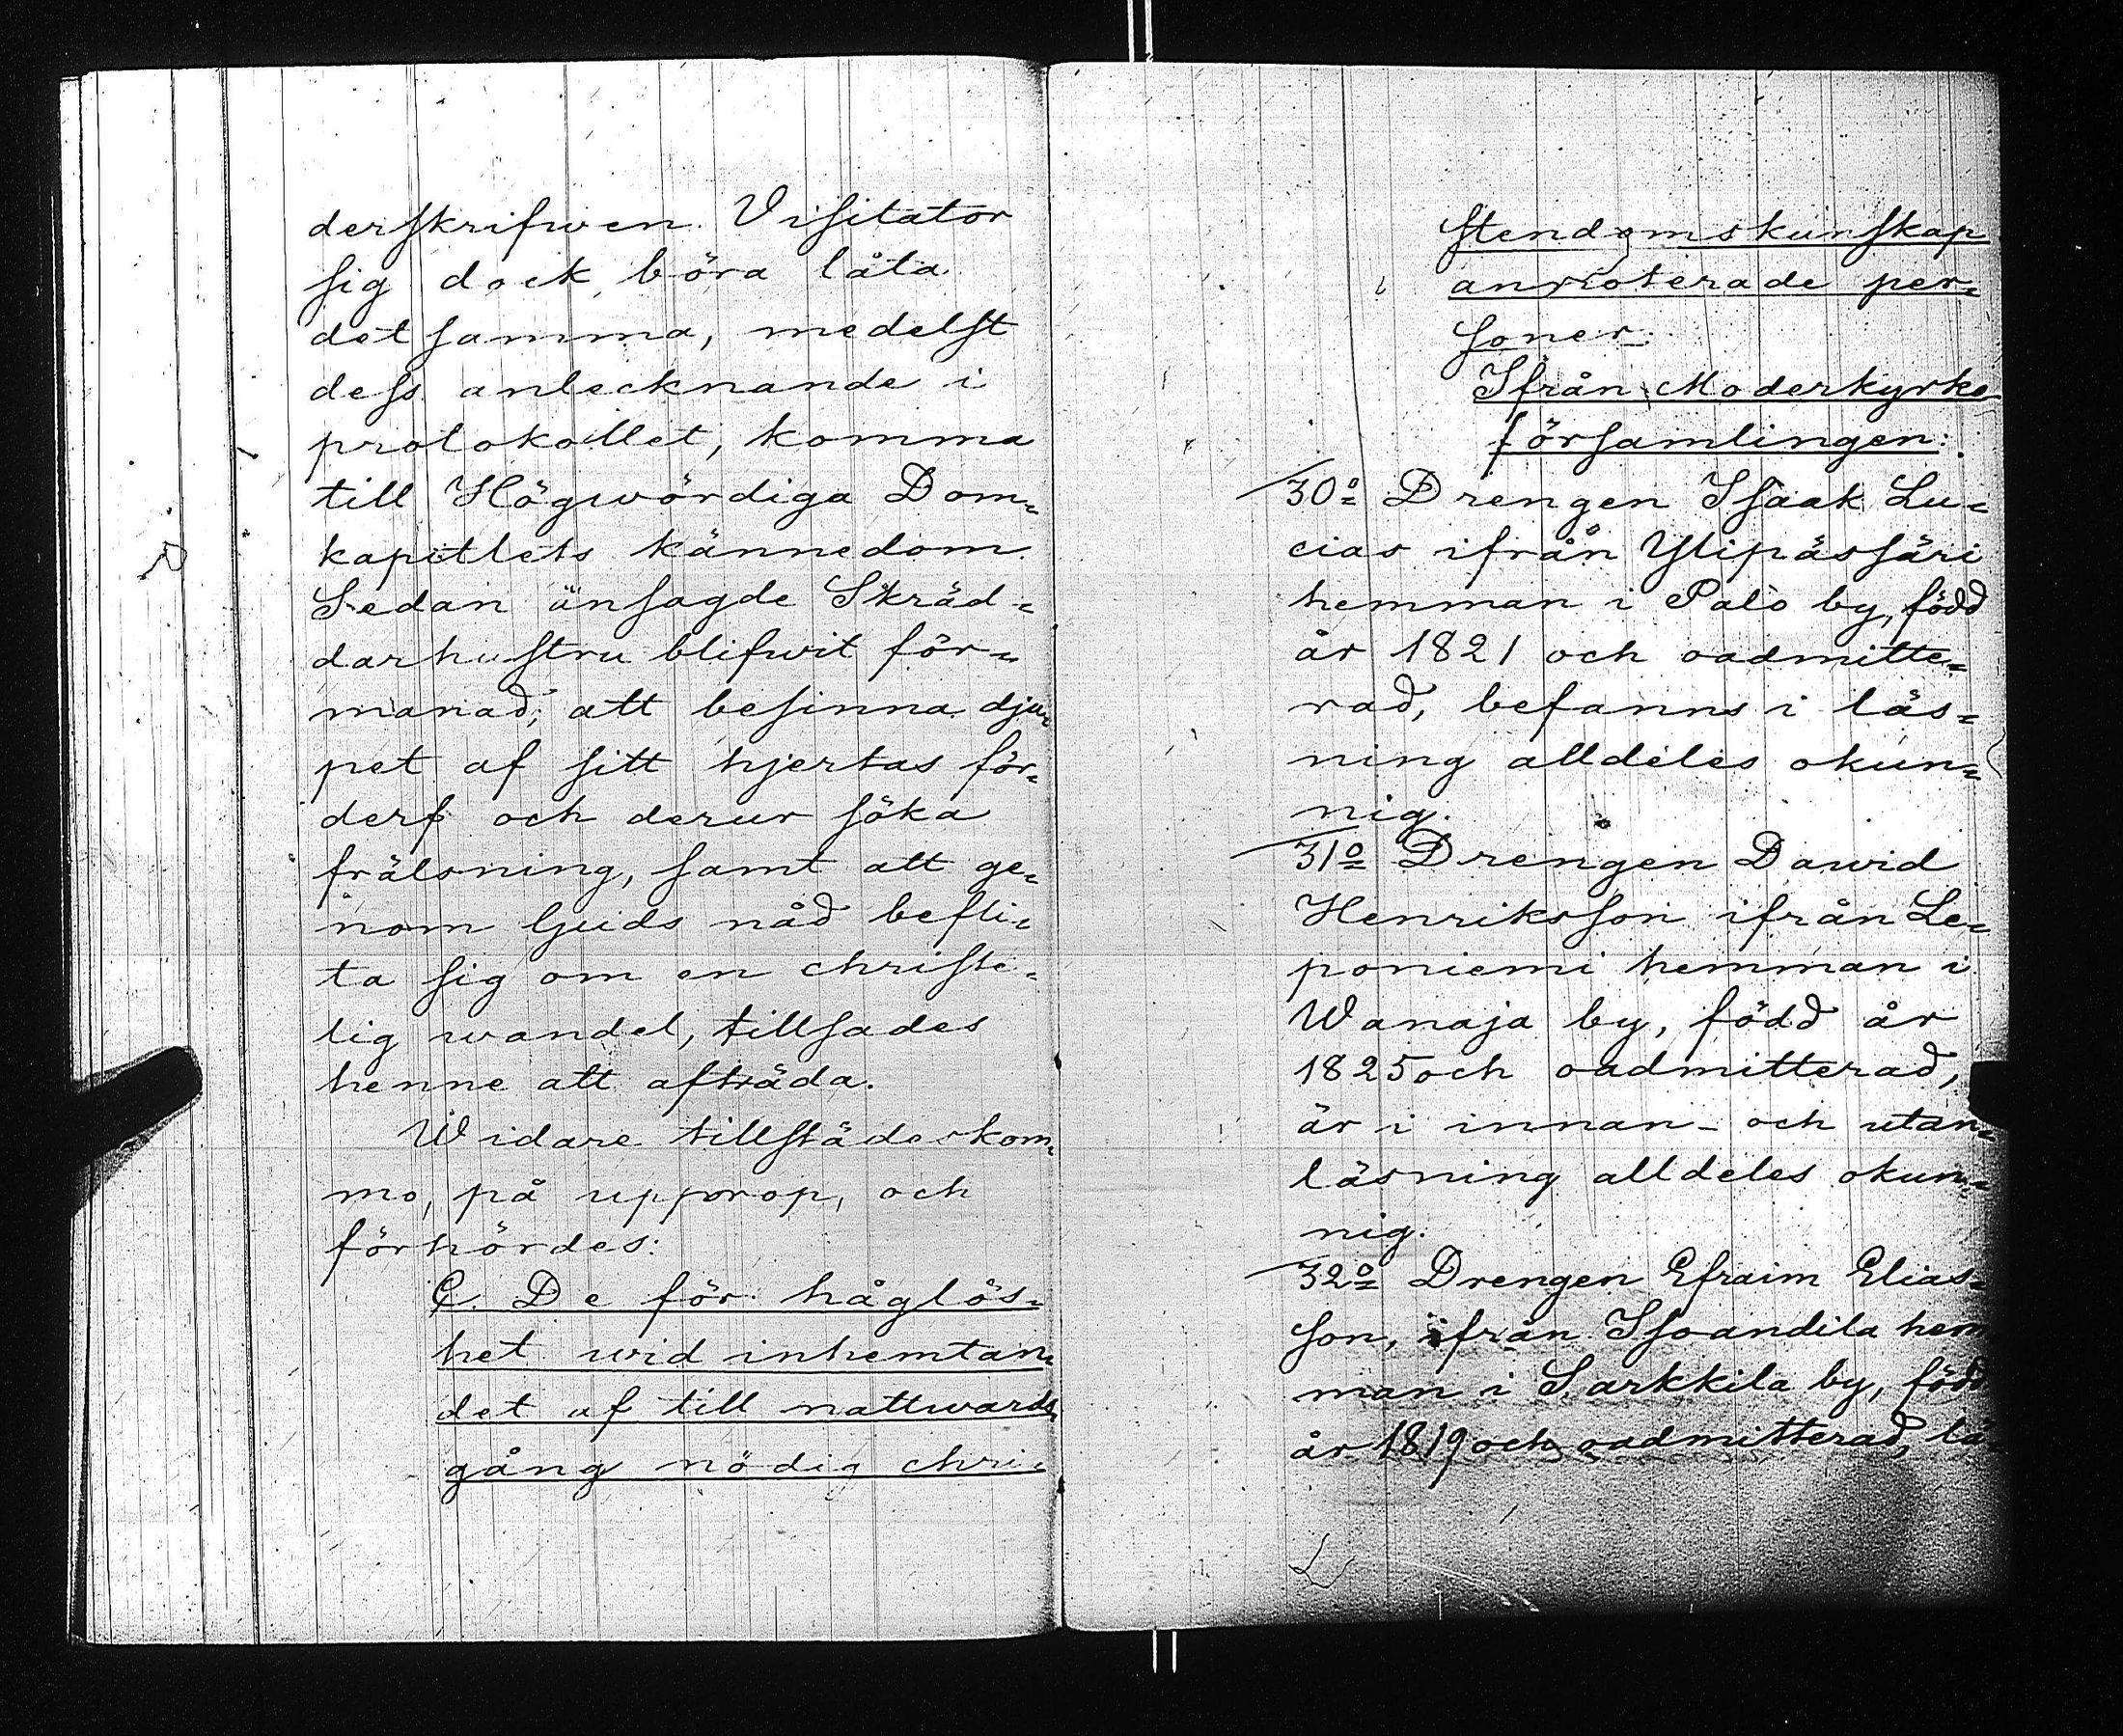 derskrifwen. Visitator
sig dock böra låta
det samma, medelst
dess antecknande i
protokollet, komma
till Högwördiga Dom=
kapitlets kännedom.
Sedan änsagde Skräd=
darhustru blifwit för=
manad, att besinna dju=
pet af sitt hjertas för=
derf och derur söka
frälsning, samt att ge=
nom Guds nåd befli=
ta sig om en christe=
lig wandel, tillsades
henne att afträda.
Widare tillstädeskom=
mo, på upprop, och
förhördes:
C. De för håglös=
het wid inhemtan=
det af till nattwards
gång nödig chri=
stendomskunskap
annoterade per=
soner.
Ifrån Moderkyrko
församlingen:
30o Drengen Isaak Lu=
cias ifrån Ylipässäri
hemman i Palo by, född
år 1821 och oadmitte=
rad, befanns i läs=
ning alldeles okun=
nig.
31o Drengen Dawid
Henriksson ifrån Le=
poniemi hemman i
Wanaja by, född år
1825 och oadmitterad,
är i innan- och utan=
läsning alldeles okun=
nig.
32o Drengen Efraim Elias=
son, ifrån Isoandila hem
man i Sarkkila by, född
år 1819 och oadmitterad, lä=